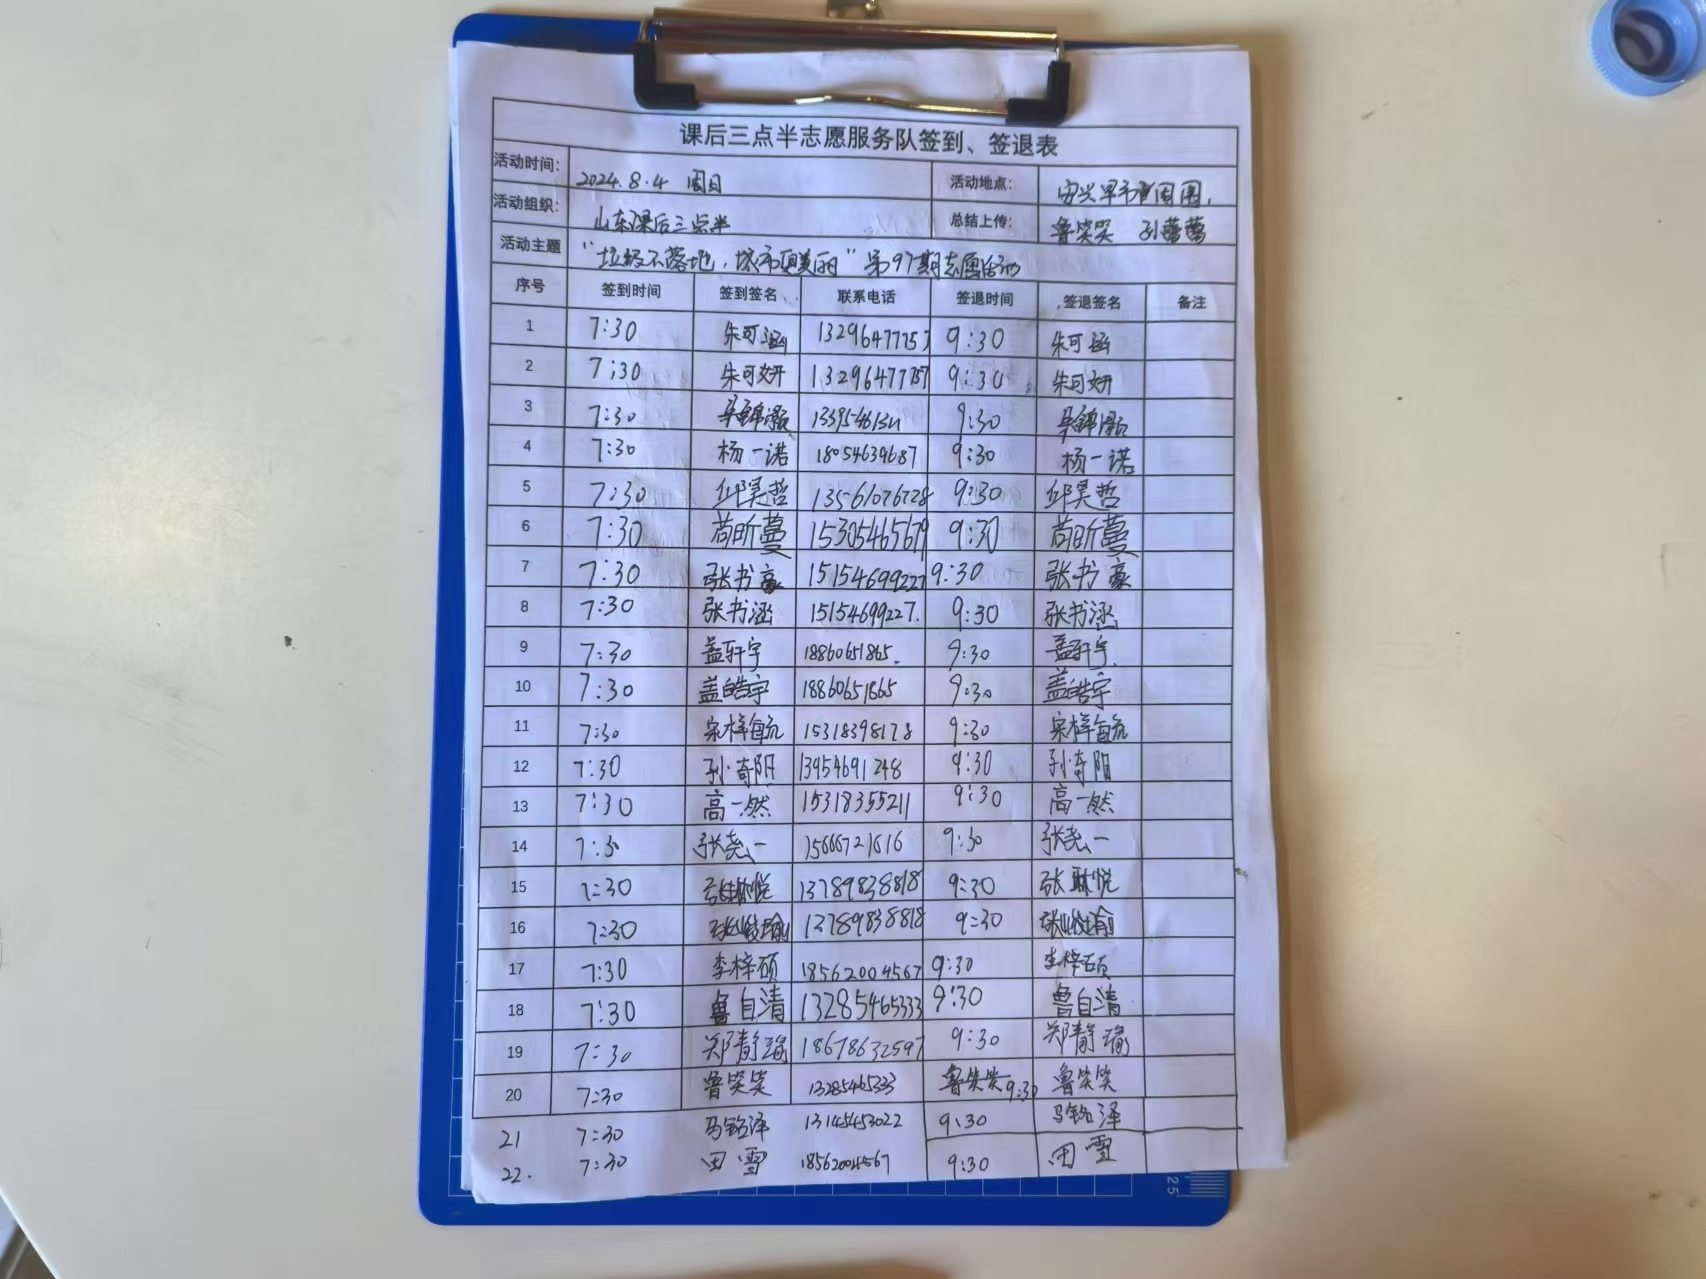 课后三点半志愿服务队签到、签退表
活动时间: 2024.8.4 周日 活动地点:
活动组织: 山东课后三点半 总结上传: 鲁笑笑 孙蕾蕾
活动主题 "垃圾不落地,城市更美丽"第97期志愿活动
序号 签到时间 签到签名 联系电话 签退时间 签退签名 备注
1 7:30 朱可涵 13296477757 9:30 朱可涵
2 7:30 朱可妍 13296477757 9:30 朱可妍
3 7:30 9:30
4 7:30 杨一诺 18054639687 9:30 杨一诺
5 7:30 邱昊哲 13561076728 9:30 邱昊哲
6 7:30 苟昕蔓 15305465679 9:30 苟昕蔓
7 7:30 张书豪 15154699227 9:30 张书豪
8 7:30 张书涵 15154699227. 9:30 张书涵
9 7:30 盖轩宇 18860651865. 9:30 盖轩宇
10 7:30 盖皓宇 18860651865 9:30 盖皓宇
11 7:30 宋梓毓 15318398178 9:30 宋梓毓
12 7:30 孙奇阳 13954691248 9:30 孙奇阳
13 7:30 高一然 15318355211 9:30 高一然
14 7:30 张尧一 15666721616 9:30 张尧一
15 7:30 13789838818 9:30
16 7:30 13789838818 9:30
17 7:30 李梓硕 18562004567 9:30 李梓硕
18 7:30 鲁自清 13285465333 9:30 鲁自清
19 7:30 郑静瑜 18678632597 9:30 郑静瑜
20 7:30 鲁笑笑 13285465333 鲁笑笑 9:30 鲁笑笑
21 7:30 马铭泽 13145453022 9:30 马铭泽
22. 7:30 田雪 18562004567 9:30 田雪
25